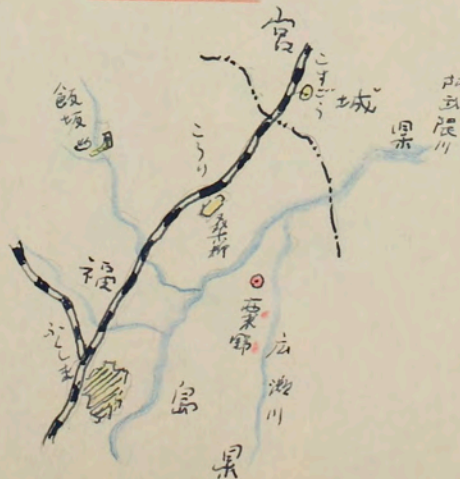 宮城県
阿武隈川
こすごう
飯坂
こうり
桑折
福島県
ふくしま
粟野
広瀬川